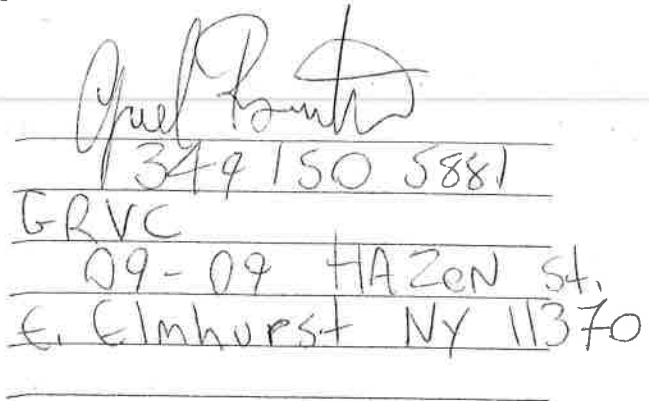 349 150 5881
GRVC
09-09 HAZeN St.
E. Elmhurst NY 11370